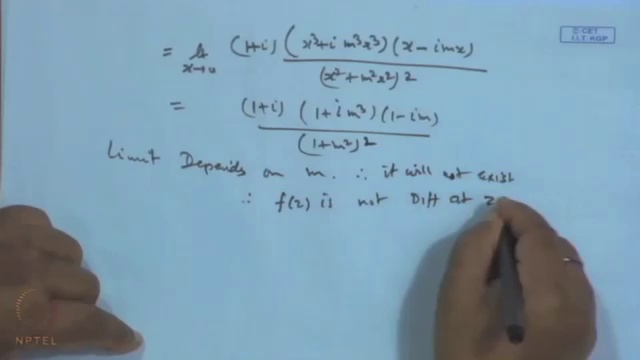 = lt x→0 (1+i) (x³+i m³x³)(x−imx) / (x²+m²x²)2
= (1+i) (1+i m³)(1−im) / (1+m²)²
Limit Depends on m. ∴ it will not exist
∴ f(z) is not Diff at z
C-CET
I.I.T. KGP
NPTEL